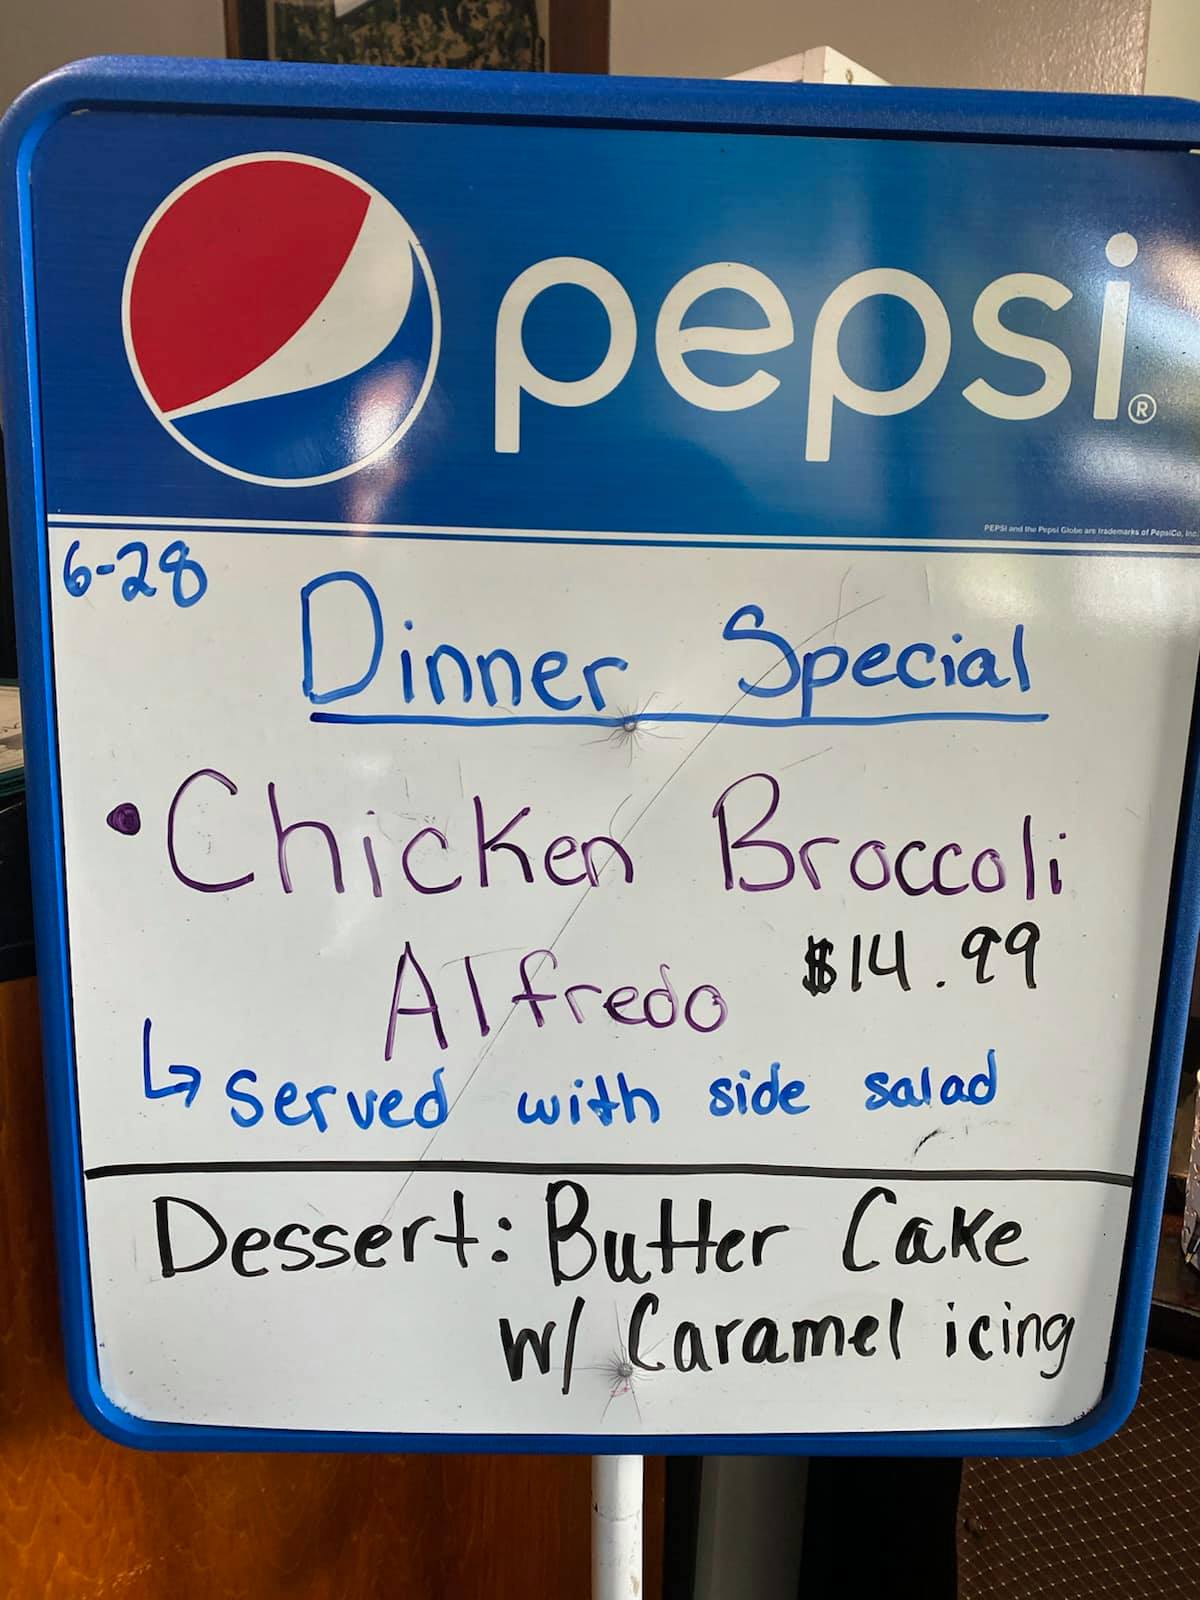 pepsi®
PEPSI and the Pepsi Globe are trademarks of PepsiCo, Inc.
6-28
Dinner Special
• Chicken Broccoli
Alfredo $14.99
↳ served with side salad
Dessert: Butter Cake
w/ Caramel icing